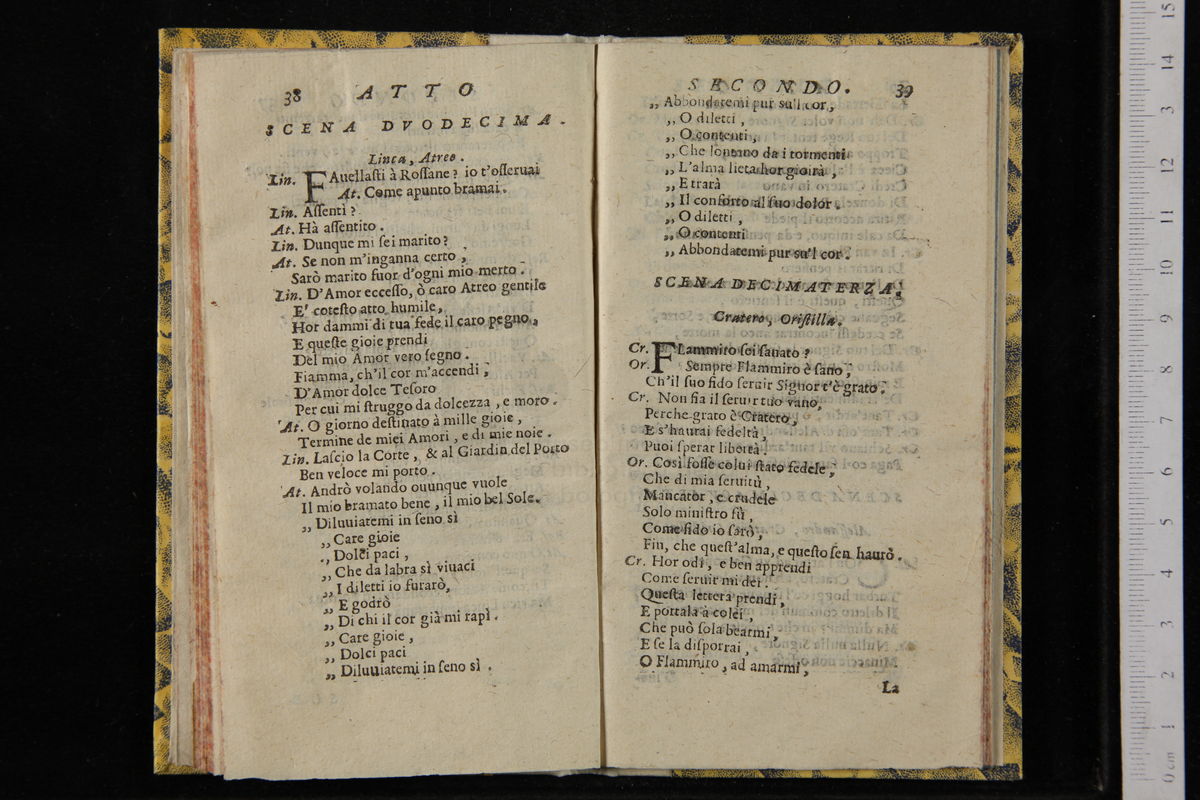 38 ATTO
SCENA DVODECIMA.
Linca, Atreo.
Lin. FAuellaſti à Roſſane? io t'oſſeruai
At. Come apunto bramai.
Lin. Aſſenti?
At. Hà aſſentito.
Lin. Dunque mi ſei marito?
At. Se non m'inganna certo,
Sarò marito fuor d'ogni mio merto.
Lin. D'Amor ecceſſo, ò caro Atreo gentile
E' coteſto atto humile,
Hor dammi di tua fede il caro pegno,
E queſte gioie prendi
Del mio Amor vero ſegno.
Fiamma, ch'il cor m'accendi,
D'Amor dolce Teſoro
Per cui mi ſtruggo da dolcezza, e moro.
At. O giorno deſtinato à mille gioie,
Termine de miei Amori, e di mie noie.
Lin. Laſcio la Corte, & al Giardin del Porto
Ben veloce mi porto.
At. Andrò volando ouunque vuole
Il mio bramato bene, il mio bel Sole.
,, Diluuiatemi in ſeno sì
,, Care gioie
,, Dolci paci,
,, Che da labra sì viuaci
,, I diletti io furarò,
,, E godrò
,, Di chi il cor già mi rapì.
,, Care gioie,
,, Dolci paci
,, Diluuiatemi in ſeno sì.
SECONDO. 39
,, Abbondatemi pur su'l cor,
,, O diletti,
,, O contenti,
,, Che lontano da i tormenti
,, L'alma lieta hor gioirà,
,, E trarà
,, Il conforto al ſuo dolor.
,, O diletti,
,, O contenti
,, Abbondatemi pur su'l cor.
SCENA DECIMATERZA.
Cratero, Oriſtilla.
Cr. FLammiro ſei ſanato?
Or. Sempre Flammiro è ſano,
Ch'il ſuo fido ſeruir Signor t'è grato.
Cr. Non fia il ſeruir tuo vano,
Perche grato è Cratero,
E s'haurai fedeltà,
Puoi ſperar libertà.
Or. Così foſſe colui ſtato fedele,
Che di mia ſeruitù,
Mancator, e crudele
Solo miniſtro fù,
Come fido io ſarò,
Fin, che queſt'alma, e queſto ſen haurò.
Cr. Hor odi, e ben apprendi
Come ſeruir mi dei.
Queſta lettera prendi,
E portala à colei,
Che può ſola bearmi,
E ſe la diſporrai,
O Flammiro, ad amarmi,
La